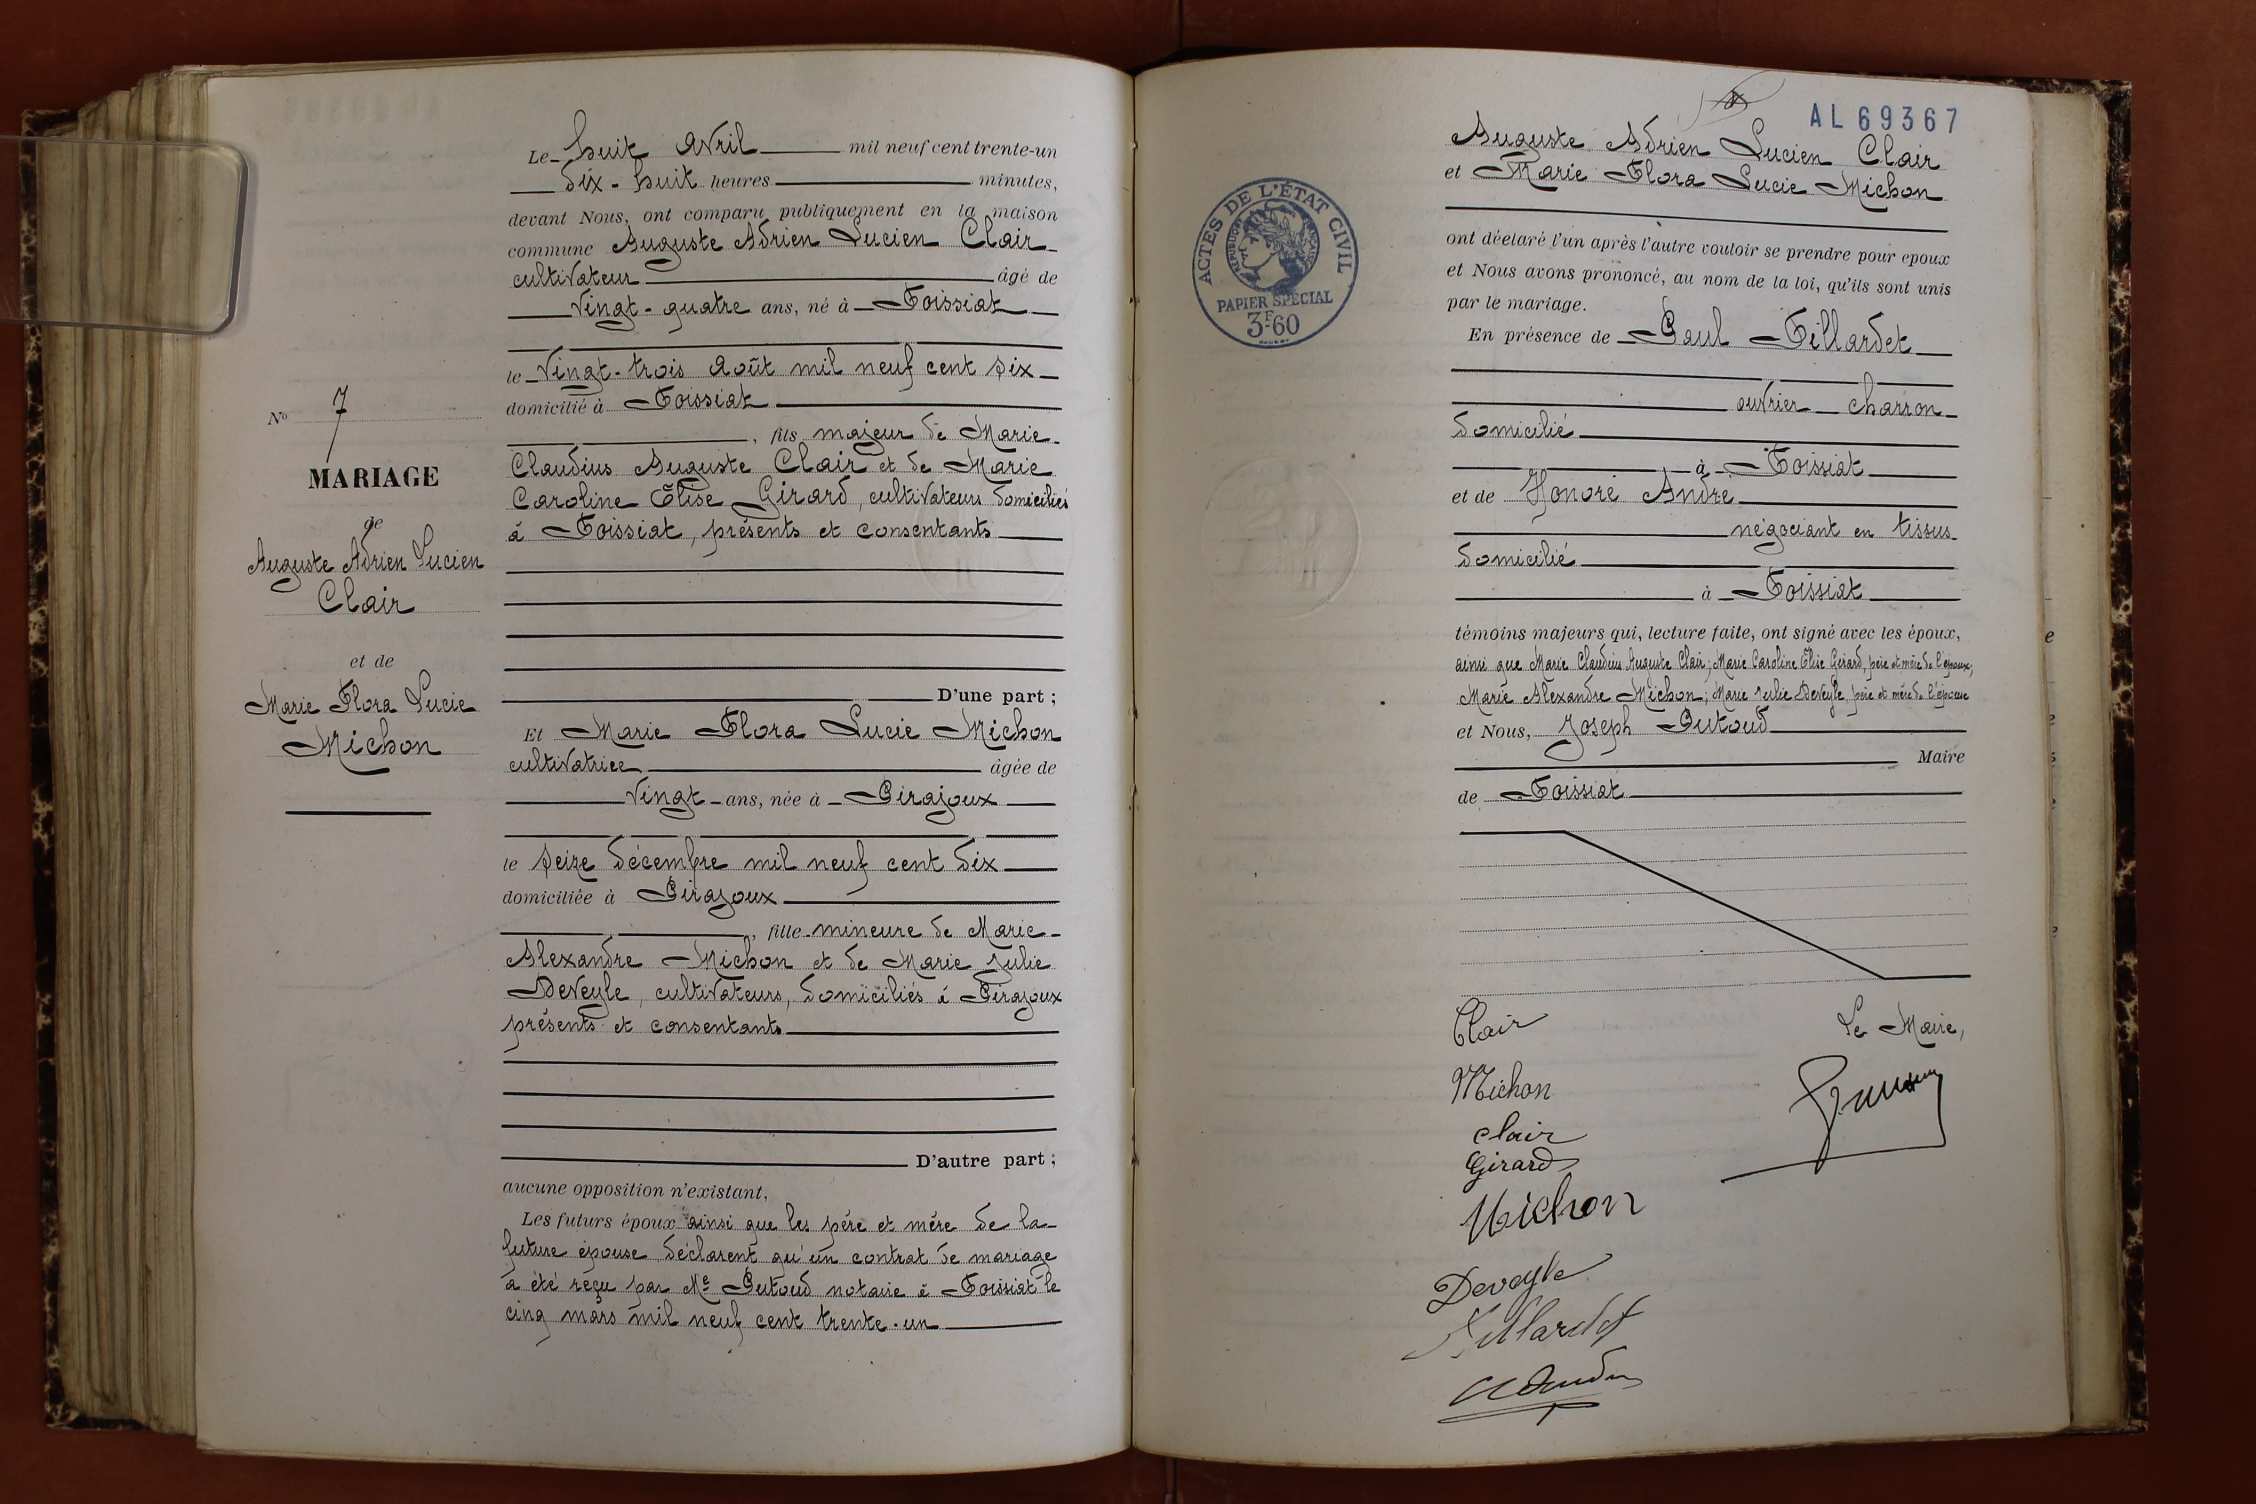 Le huit avril mil neuf cent trente-un
dix-huit heures minutes,
devant Nous, ont comparu publiquement en la maison
commune Auguste Adrien Lucien Clair
cultivateur âgé de
vingt-quatre ans, né à Foissiat
le vingt-trois août mil neuf cent six
domicilié à Foissiat
, fils majeur de Marie
Claudius Auguste Clair et de Marie
Caroline Élise Girard, cultivateurs domiciliés
à Foissiat, présents et consentants
D'une part ;
Et Marie Flora Lucie Michon
cultivatrice âgée de
vingt ans, née à Pirajoux
le seize décembre mil neuf cent dix
domiciliée à Pirajoux
, fille mineure de Marie
Alexandre Michon et de Marie Julie
Deveyle, cultivateurs, domiciliés à Pirajoux
présents et consentants
D'autre part ;
aucune opposition n'existant,
Les futurs époux ainsi que les père et mère de la
future épouse déclarent qu'un contrat de mariage
a été reçu par Me Putoud notaire à Foissiat le
cinq mars mil neuf cent trente-un
No 7
MARIAGE
de
Auguste Adrien Lucien
Clair
et de
Marie Flora Lucie
Michon
AL 69367
Auguste Adrien Lucien Clair
et Marie Flora Lucie Michon
ACTES DE L'ÉTAT CIVIL
RÉPUBLIQUE FRANÇAISE
PAPIER SPÉCIAL
3F60
ont déclaré l'un après l'autre vouloir se prendre pour epoux
et Nous avons prononcé, au nom de la loi, qu'ils sont unis
par le mariage.
En présence de Paul Tillardet
ouvrier charron
domicilié
à Foissiat
et de Honoré André
négociant en tissus
domicilié
à Foissiat
témoins majeurs qui, lecture faite, ont signé avec les époux,
ainsi que Marie Claudius Auguste Clair; Marie Caroline Élise Girard, père et mère de l'époux,
Marie Alexandre Michon; Marie Julie Deveyle, père et mère de l'épouse
et Nous, Joseph Putoud
Maire
de Foissiat
Clair
Le Maire,
Michon
Clair
Girard
Michon
Deveyle
Tillardet